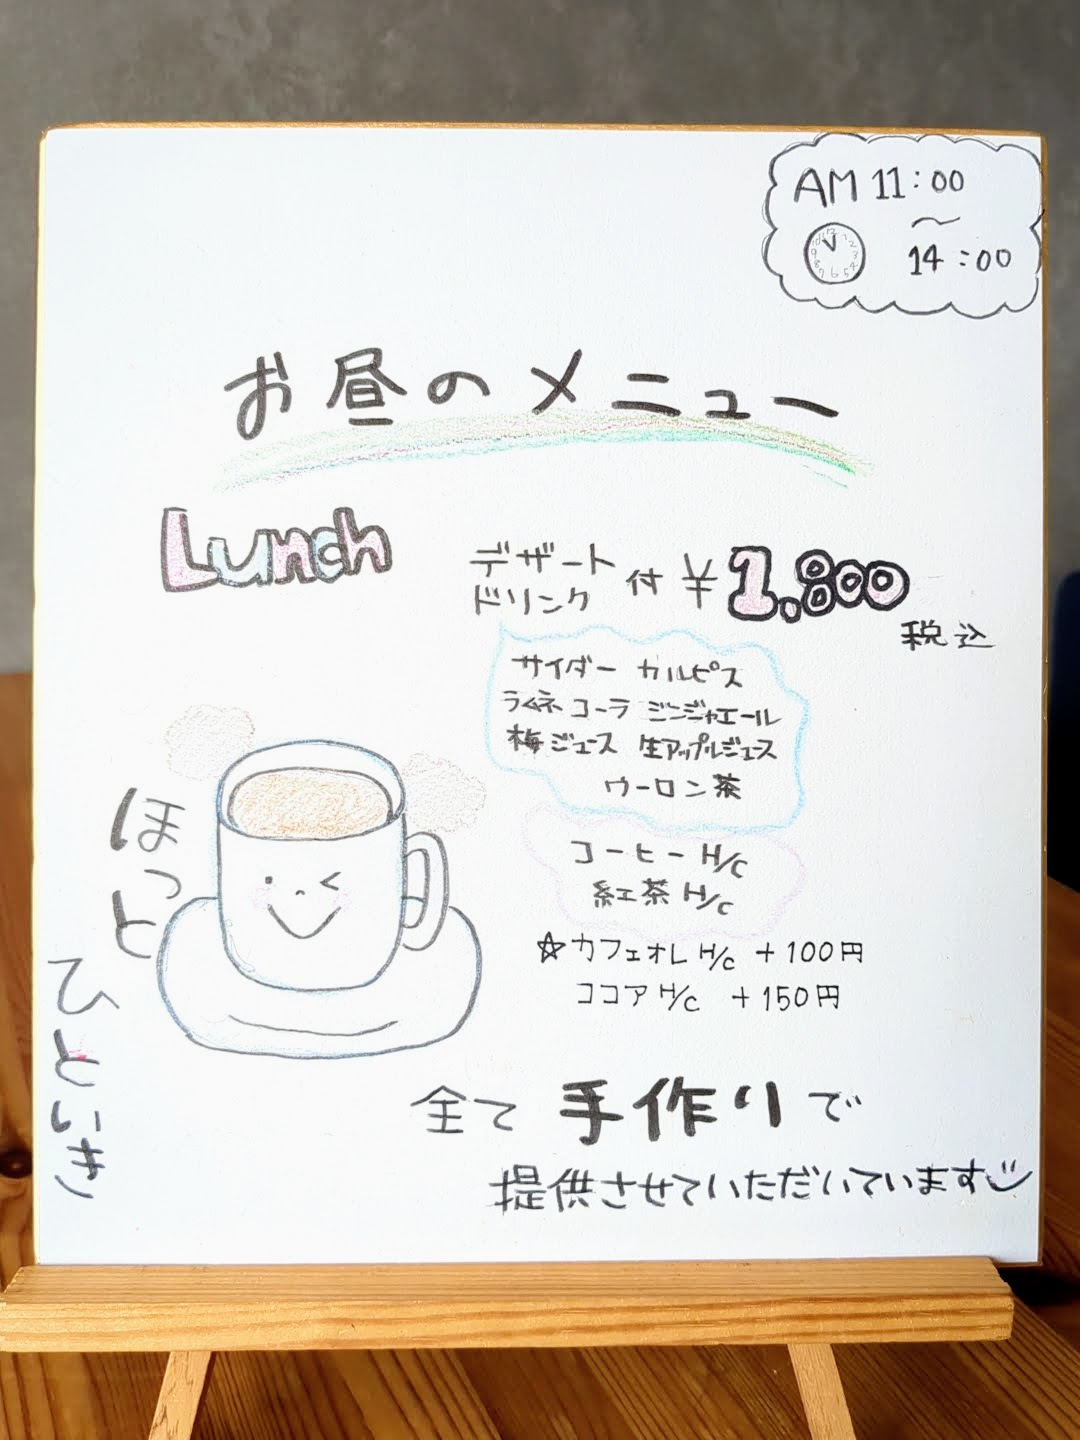 AM 11:00
〜
14:00
お昼のメニュー
Lunch
デザート
ドリンク 付 ¥1,800
税込
サイダー カルピス
ラムネ コーラ ジンジャエール
梅ジュース 生アップルジュース
ウーロン茶
コーヒー H/C
紅茶 H/C
☆カフェオレ H/C +100円
ココア H/C +150円
ほっと
ひといき
全て 手作りで
提供させていただいています